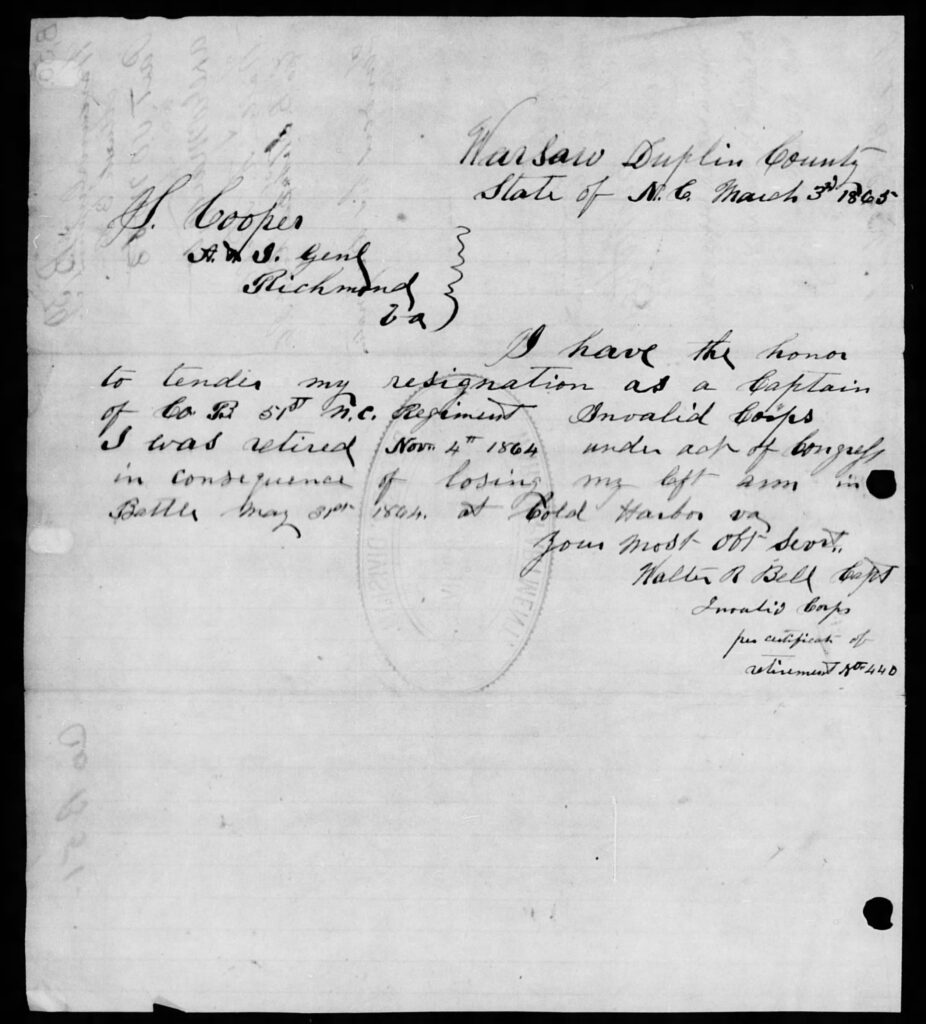 Warsaw Duplin County
State of N. C. March 3rd 1865
S. Cooper
A. & I. Genl
Richmond
Va
I have the honor
to tender my resignation as a Captain
of Co B 51st N.C. Regiment Invalid Corps
I was retired Nov. 4th 1864 under act of Congress
in consequence of losing my left arm in
Battle May 31st 1864. at Cold Harbor va
Your most Obt Servt.
Walter R Bell Capt
Invalid Corps
per certificate of
retirement No 440